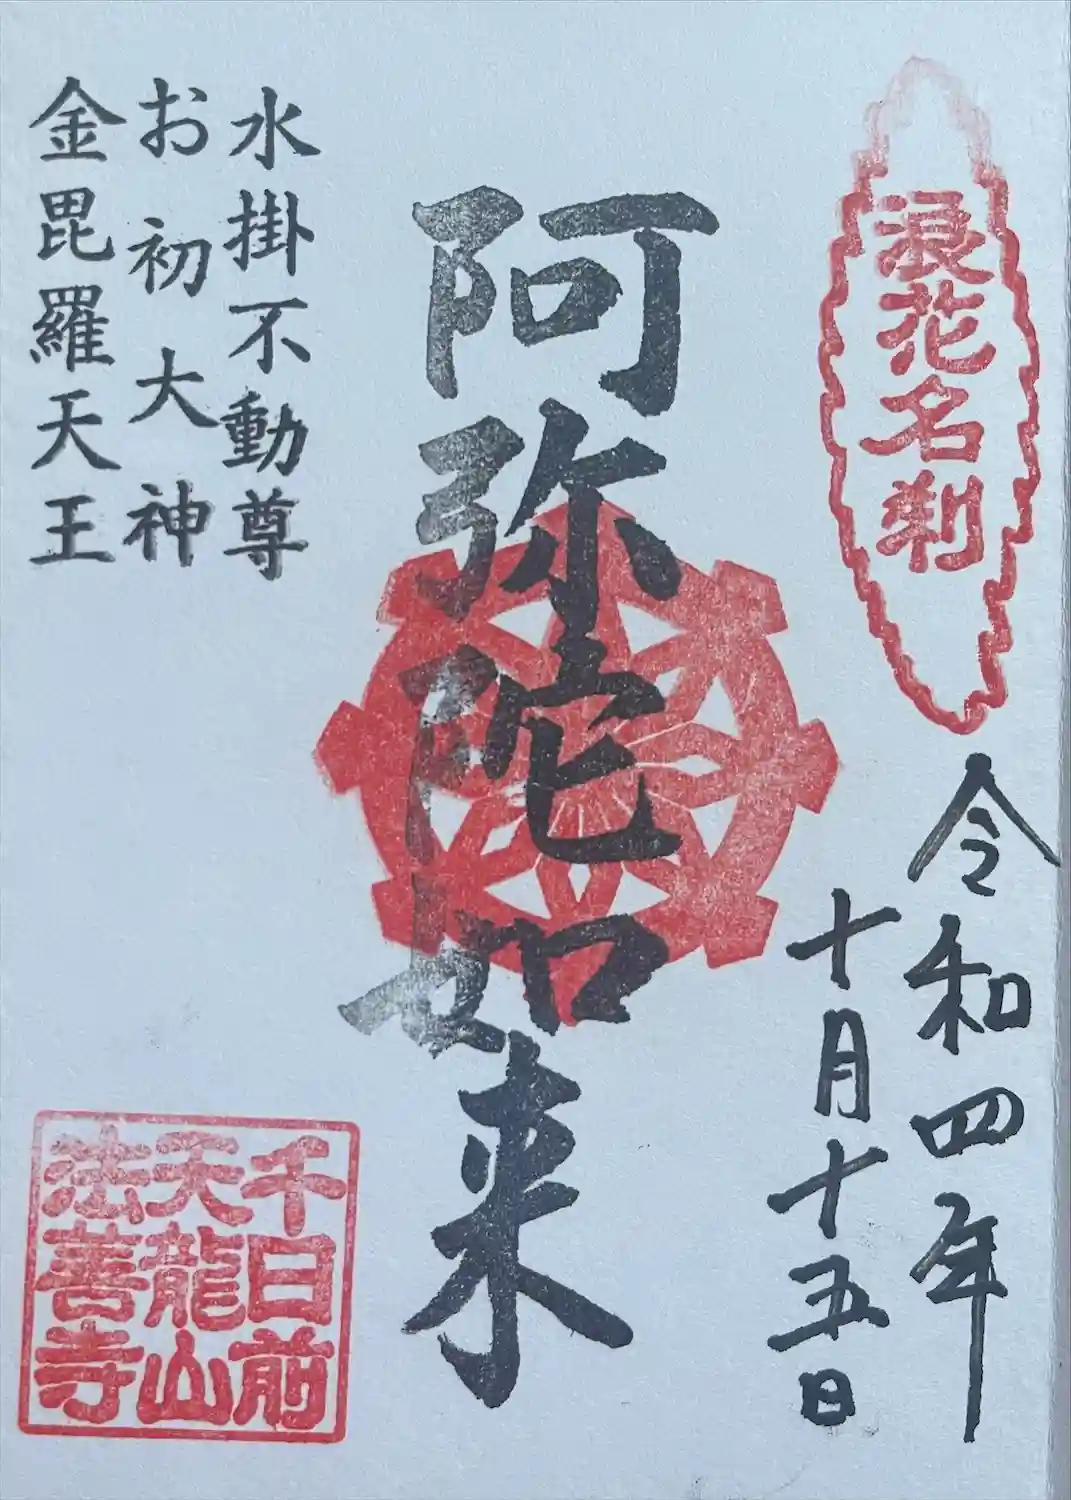 浪花名刹
令和四年
十月十五日
阿弥陀如来
水掛不動尊
お初大神
金毘羅天王
千日前
天龍山
法善寺